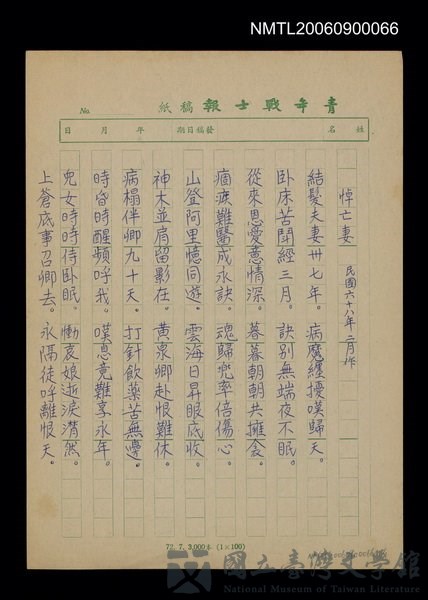 NMTL20060900066
青年戰士報稿紙
No.
姓名 發稿日期 年 月 日
悼亡妻 民國六十八年二月作
結髮夫妻卅七年。病魔纏擾嘆歸天。
臥床苦鬪經三月。訣別無端夜不眠。
從來恩愛意情深。暮暮朝朝共擁衾。
痼疾難醫成永訣。魂歸兜率倍傷心。
山登阿里憶同遊。雲海日昇眼底收。
神木並肩留影在。黃泉卿赴恨難休。
病榻伴卿九十天。打針飲藥苦無邊。
時昏時醒頻呼我。嘆息竟難享永年。
兒女時時侍臥眠。慟哀娘逝淚潸然。
上蒼底事召卿去。永隔徒呼離恨天。
72.7.3,000本(1×100)
國立臺灣文學館
National Museum of Taiwan Literature